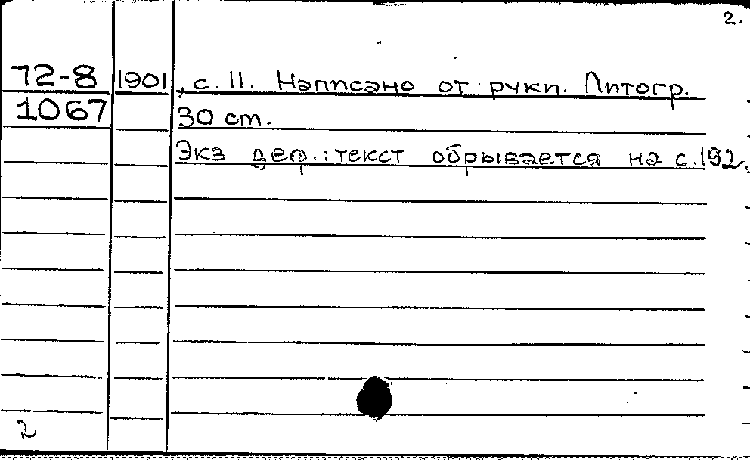 2.
72-8 1901, с. 11. Написано от рукп. Литогр.
1067 30 ст.
Экз деф.: текст обрывается на с. 192.
2